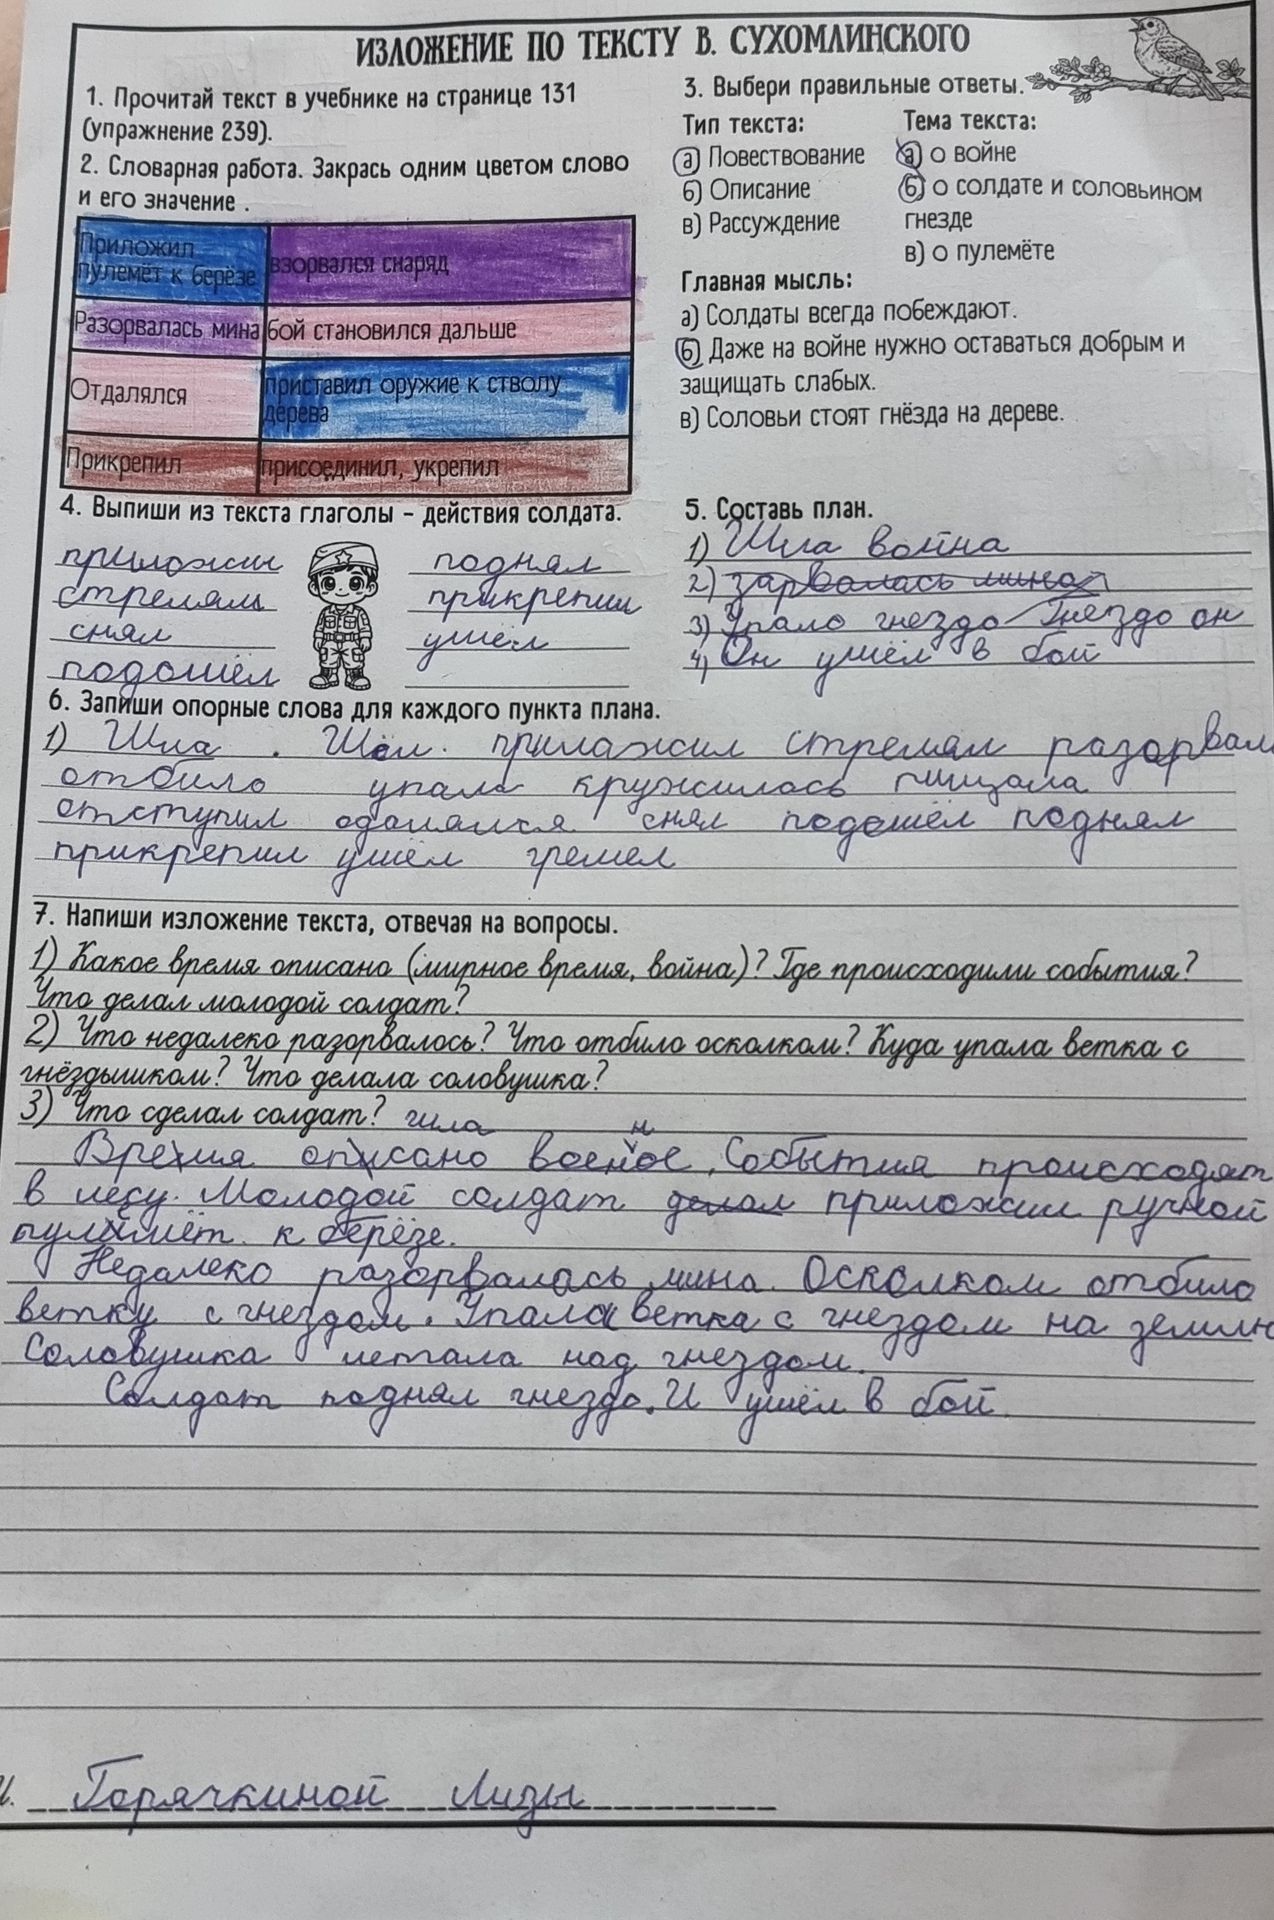 ИЗЛОЖЕНИЕ ПО ТЕКСТУ В. СУХОМЛИНСКОГО
1. Прочитай текст в учебнике на странице 131
(упражнение 239).
2. Словарная работа. Закрась одним цветом слово
и его значение .
Приложил
пулемёт к берёзе
взорвался снаряд
Разорвалась мина
бой становился дальше
Отдалялся
приставил оружие к стволу
дерева
Прикрепил
присоединил, укрепил
3. Выбери правильные ответы.
Тип текста:
а) Повествование
б) Описание
в) Рассуждение
Тема текста:
а) о войне
б) о солдате и соловьином
гнезде
в) о пулемёте
Главная мысль:
а) Солдаты всегда побеждают.
б) Даже на войне нужно оставаться добрым и
защищать слабых.
в) Соловьи стоят гнёзда на дереве.
4. Выпиши из текста глаголы – действия солдата.
приложил
стрелял
снял
подошёл
поднял
прикрепил
ушёл
5. Составь план.
1) Шла война
2) зарвалась мина
3) Упало гнездо Гнездо он
4) Он ушёл в бой
6. Запиши опорные слова для каждого пункта плана.
1) Шла . Шёл. прилажил стрелял разорвал
отбило упала кружилась пищала
отступил одалялся снял подошёл поднял
прикрепил ушёл гремел
7. Напиши изложение текста, отвечая на вопросы.
1) Какое время описано (мирное время, война)? Где происходили события?
Что делал молодой солдат?
2) Что недалеко разорвалось? Что отбило осколком? Куда упала ветка с
гнёздышком? Что делала соловушка?
3) Что сделал солдат? шла
Время описано военое. События происходят
в лесу. Молодой солдат делал приложил ручной
пулимёт к берёзе.
Недалеко разорвалась мина. Осколком отбило
ветку с гнездом. Упала ветка с гнездом на землю
Соловушка летала над гнездом.
Солдат поднял гнездо. И ушёл в бой.
Горячкиной Лизы